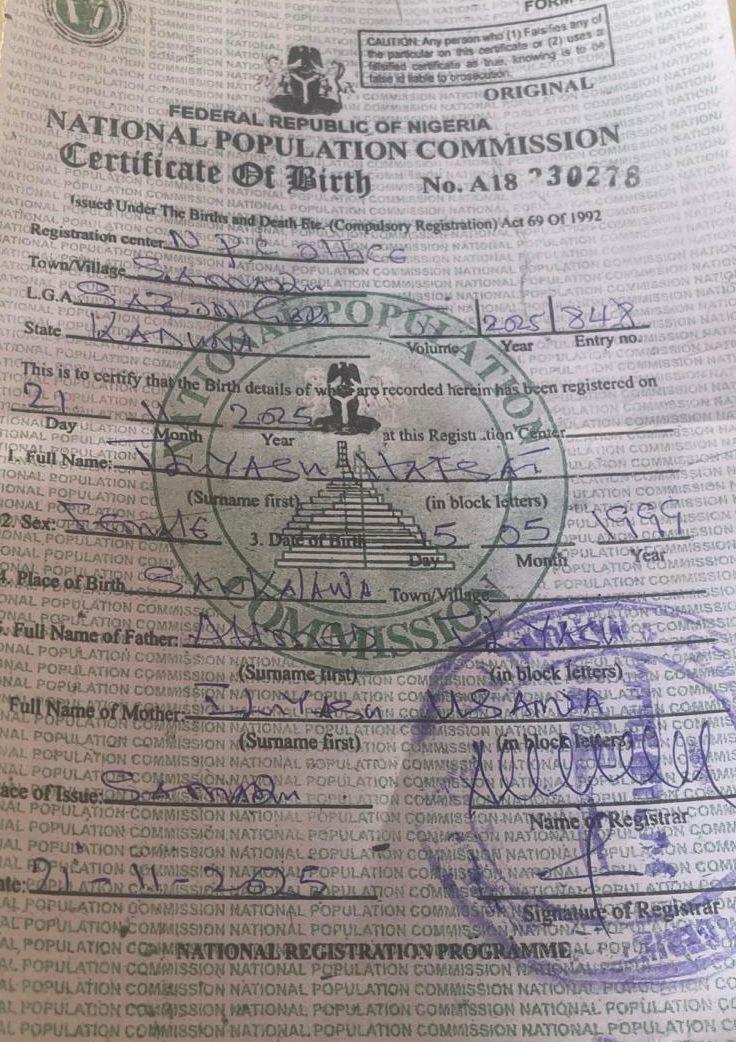 FORM
CAUTION: Any person who (1) Falsifies any of
the particular on this certificate or (2) uses a
falsified certificate as true, knowing is to be
false id liable to prosecution.
ORIGINAL
FEDERAL REPUBLIC OF NIGERIA
NATIONAL POPULATION COMMISSION
Certificate Of Birth No. A18 230278
Issued Under The Births and Death Ete. (Compulsory Registration) Act 69 Of 1992
Registration center N P C Office
Town/Village SAMARU
L.G.A SABON GARI
State KADUNA
VI 2025 848
Volume Year Entry no.
This is to certify that the Birth details of whose are recorded herein has been registered on
21 11 2025
Day Month Year at this Registration Center
1. Full Name: ILIYASU HAFSAT
(Surname first) (in block letters)
2. Sex: FEMALE 3. Date of Birth 5 05 1999
Day Month Year
4. Place of Birth Town/Village
5. Full Name of Father: AHMED ILIYASU
(Surname first) (in block letters)
Full Name of Mother: ILIYASU
(Surname first) (in block letters)
Place of Issue: SAMARU
Name of Registrar
Date: 21-11-2025
Signature of Registrar
NATIONAL REGISTRATION PROGRAMME
NATIONAL POPULATION COMMISSION